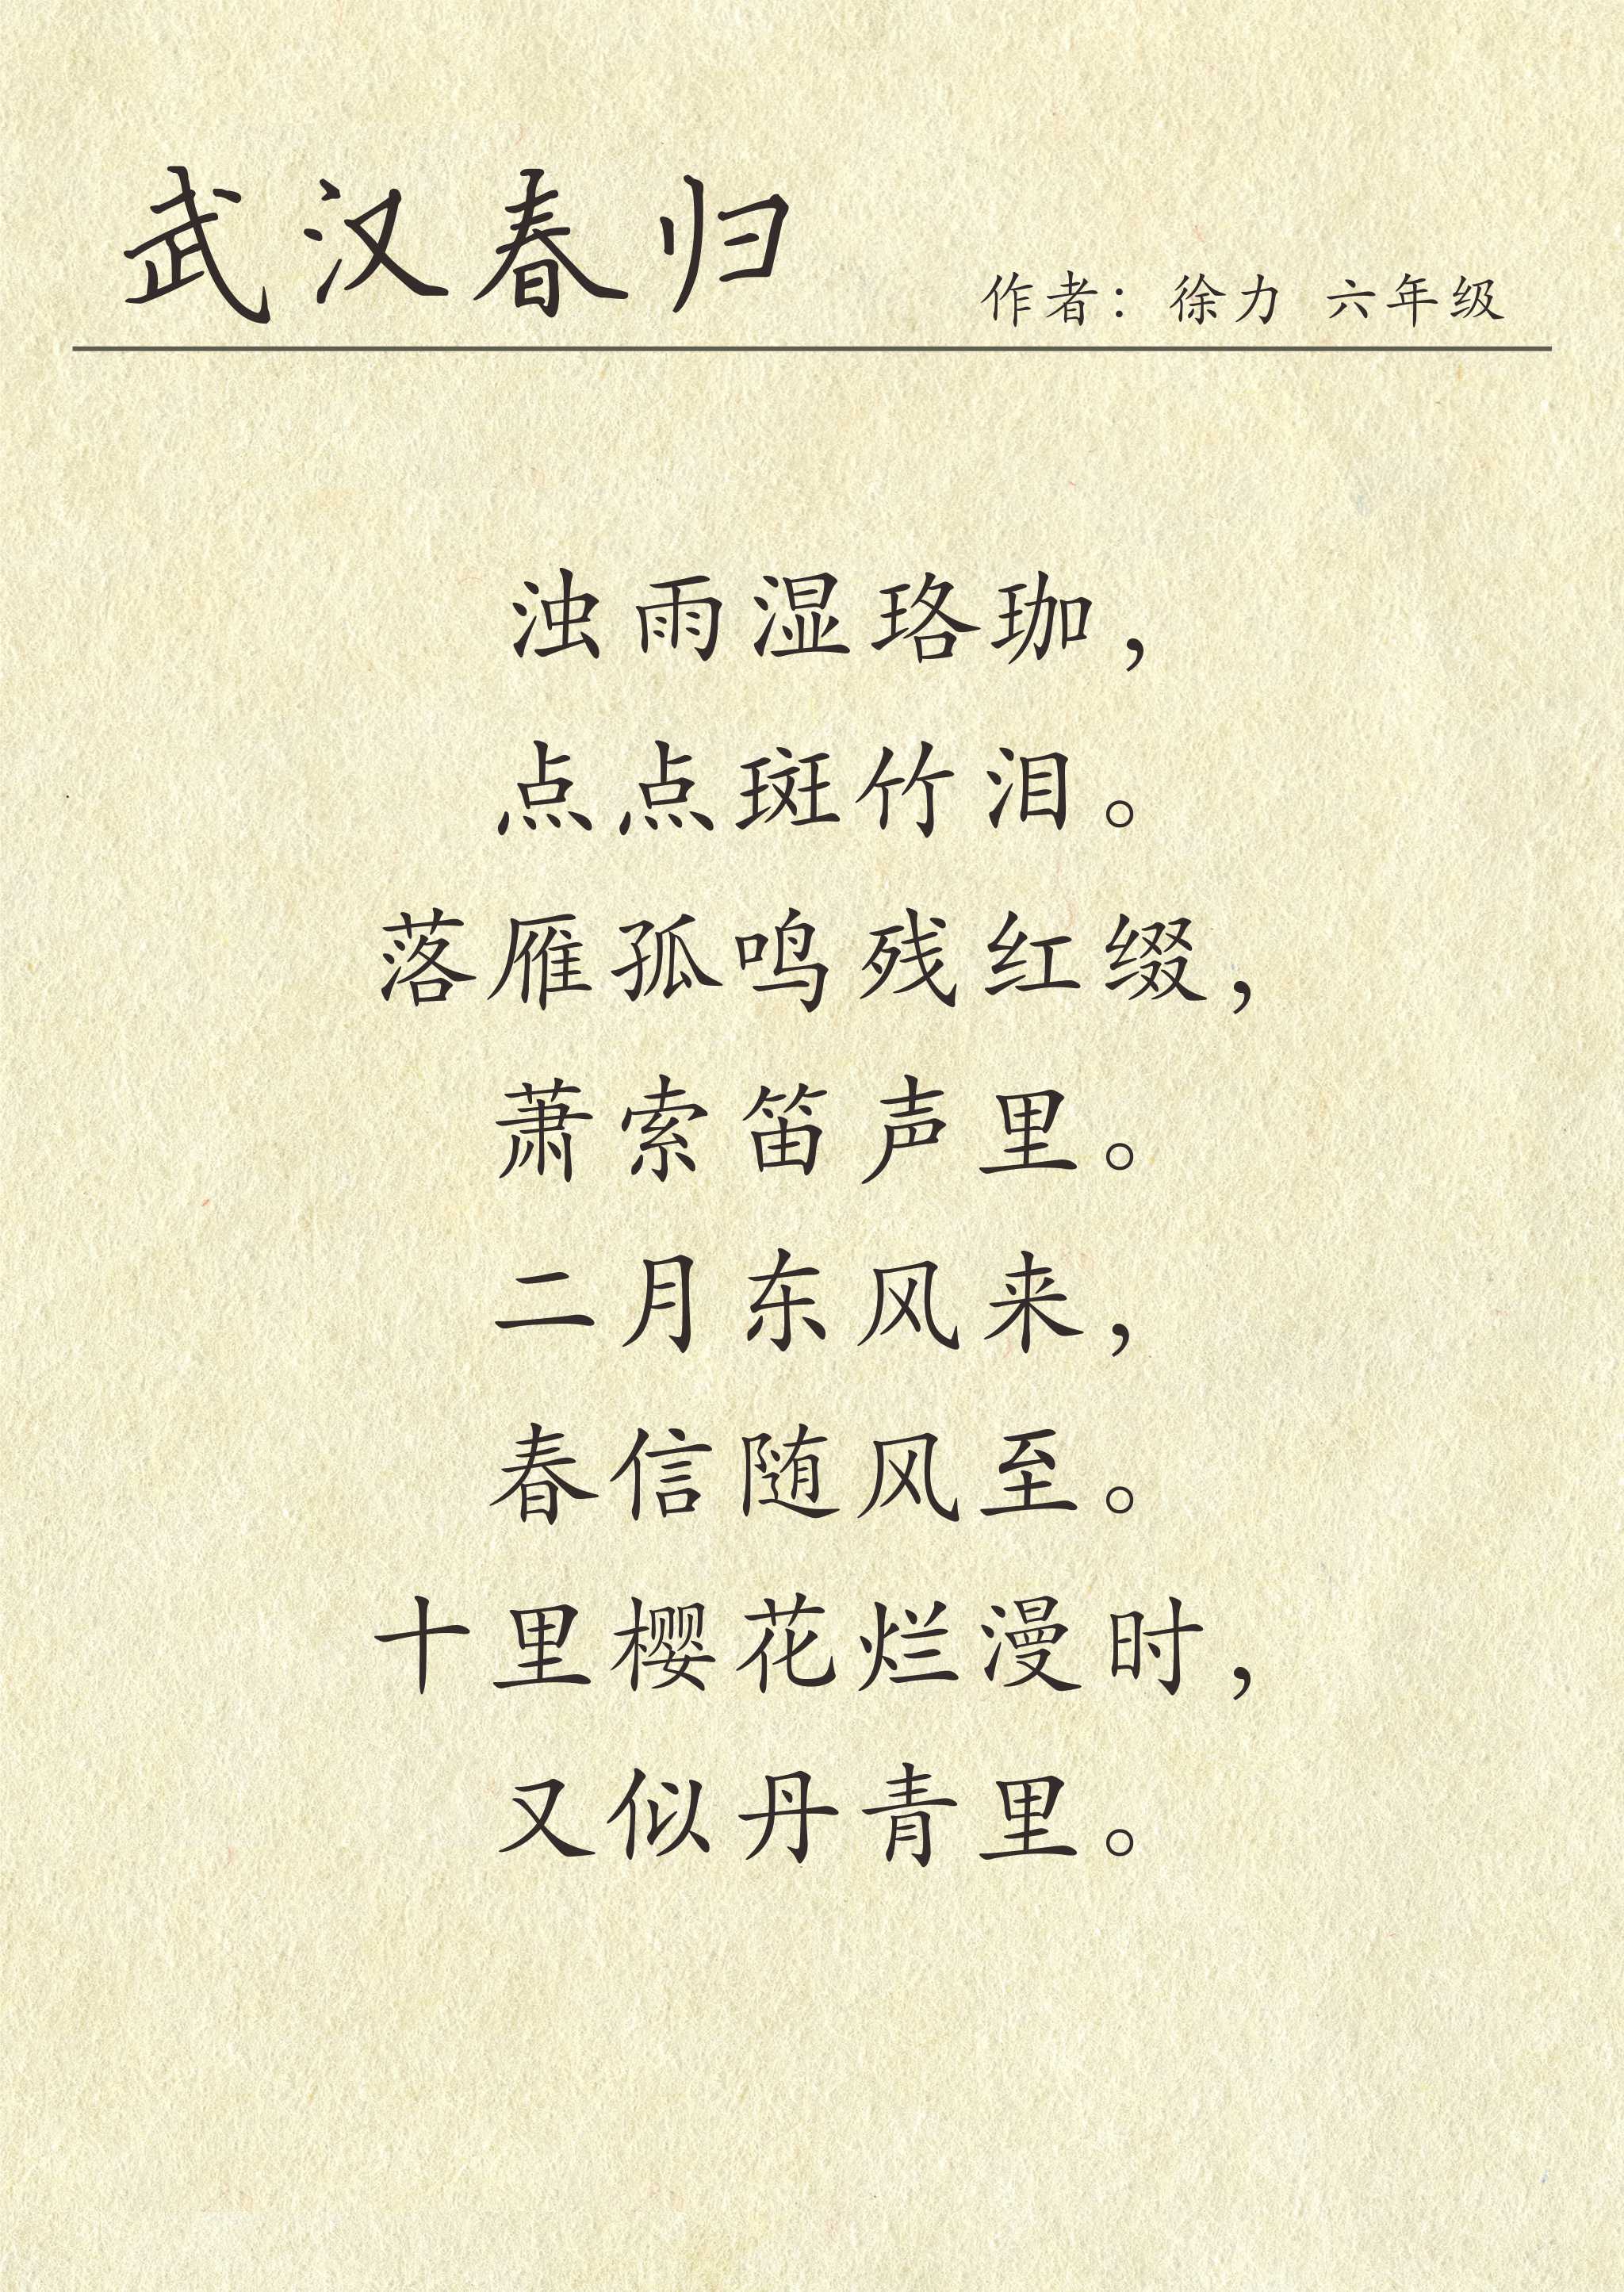 武汉春归
作者：徐力 六年级
浊雨湿珞珈，
点点斑竹泪。
落雁孤鸣残红缀，
萧索笛声里。
二月东风来，
春信随风至。
十里樱花烂漫时，
又似丹青里。